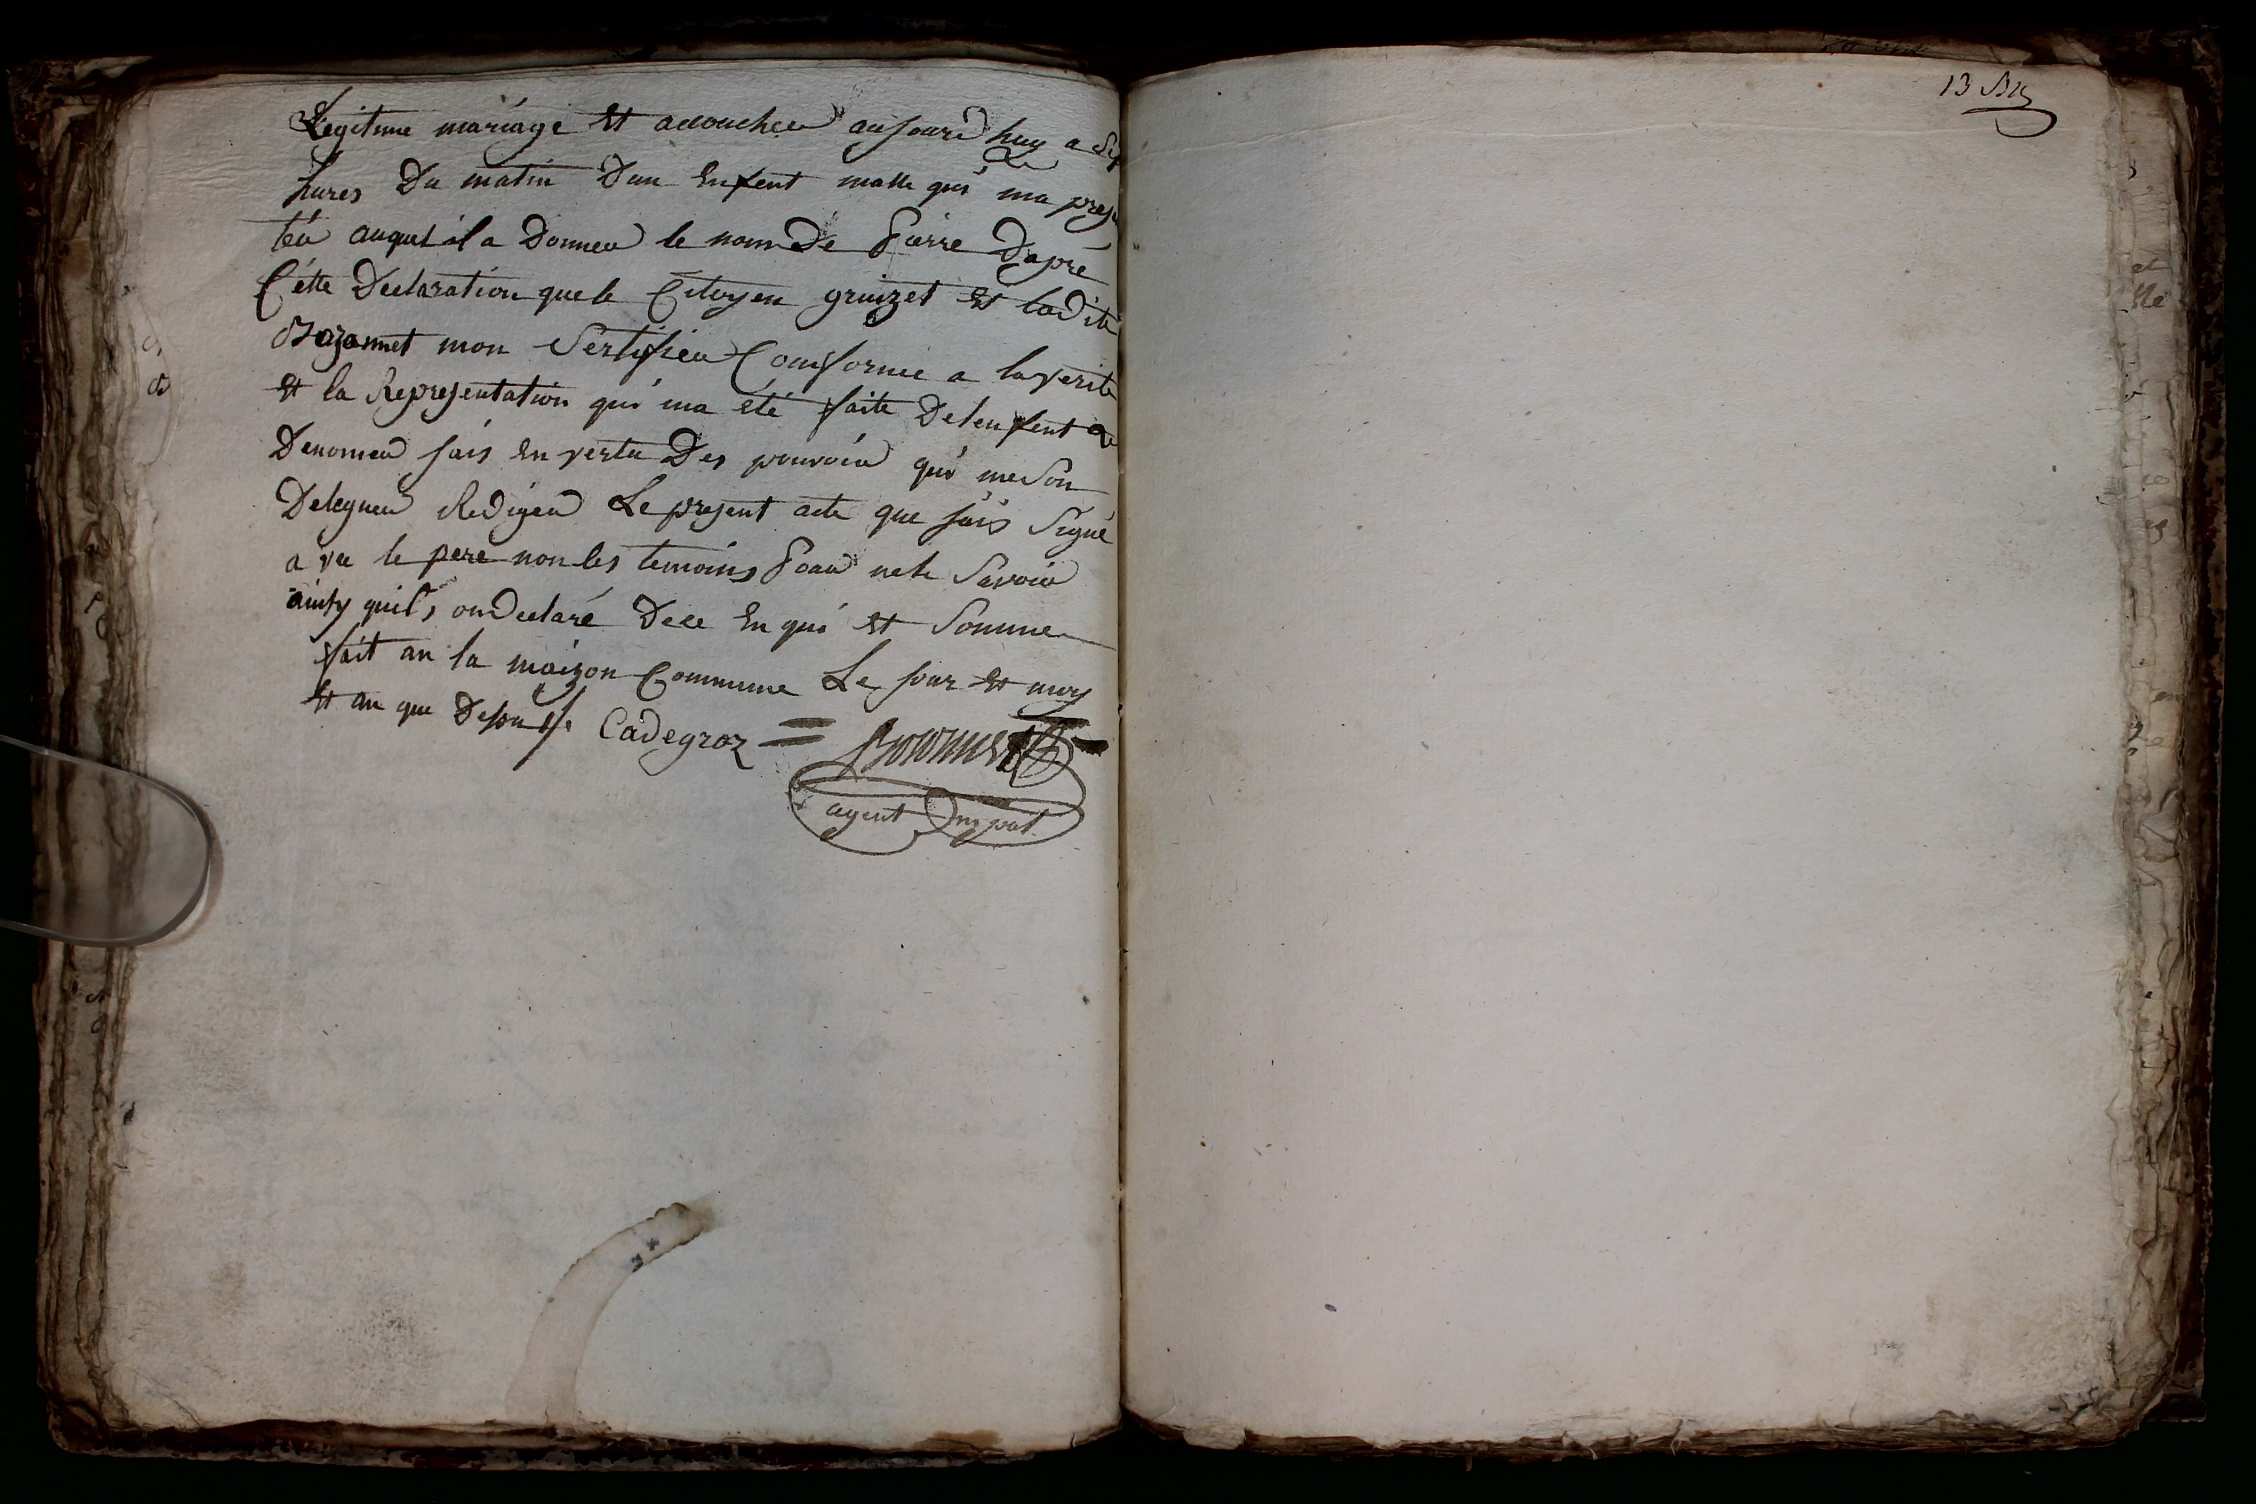 Legitime mariage Et accouchée aujourd huy a Sep
hures Du matin Dun Enfent malle qui ma presen
téa auquel il a Donnea le nom De Pierre Daprè
Cette Declaration que le Citoyen gruizet Et ladite
Bajonnet mon Sertifiea Conforme a la verite
Et la Representation qui ma été faite De lenfent
Denomea jais En vertu Des pouvoir qui me Son
Deleguea Redigea Le present acte que jais Signé
a vec le pere non les temoins Pour ne le Savoir
ainsy quils on Declaré Dece En qui Et Somme
fait an la maizon Commune Le jour Et moy
Et an que Desu Cadegroz
agent
13